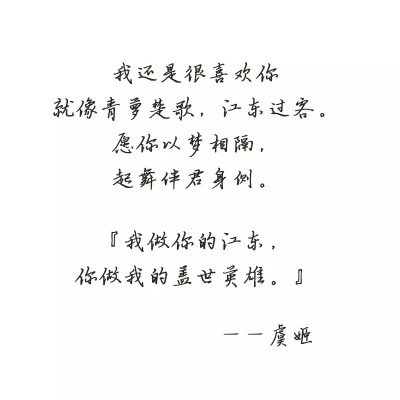 我还是很喜欢你
就像青萝楚歌，江东过客。
愿你以梦相隔，
起舞伴君身侧。
『我做你的江东，
你做我的盖世英雄。』
——虞姬